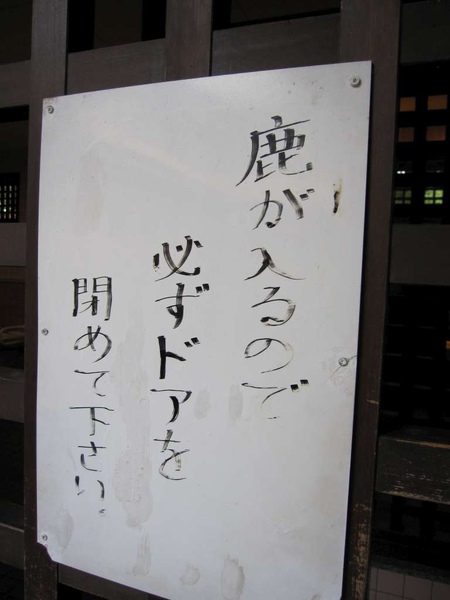 鹿が入るので
必ずドアを
閉めて下さい.